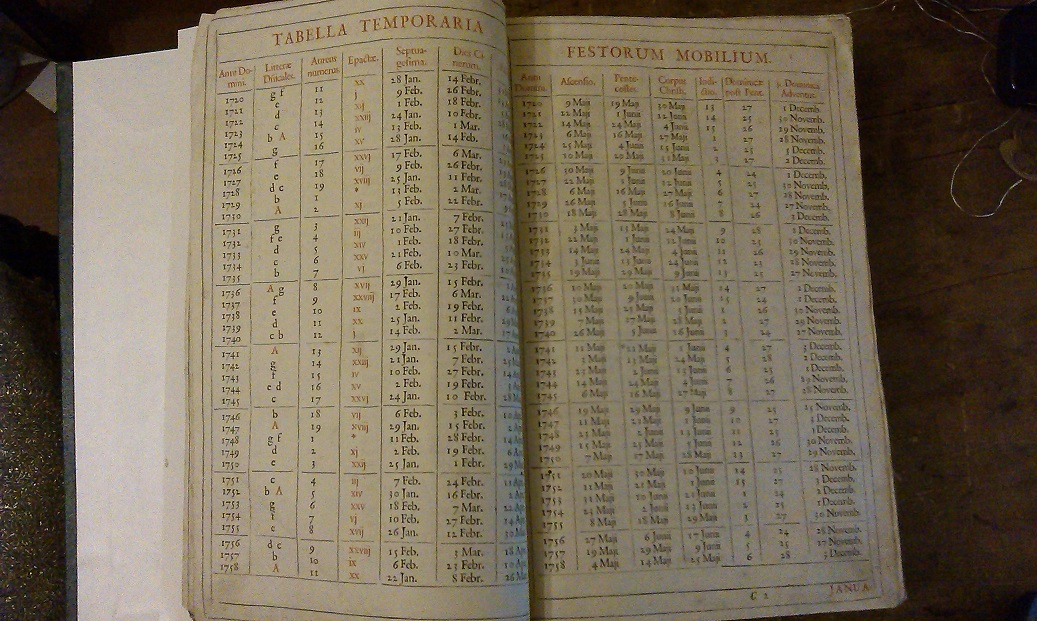 TABELLA TEMPORARIA
Anni Domini. Litteræ Dñicales. Aureus numerus. Epactæ. Septuagesima. Dies Cinerum.
1720 g f 11 xx 28 Jan. 14 Febr.
1721 e 12 j 9 Feb. 26 Febr.
1722 d 13 xij 1 Feb. 18 Febr.
1723 c 14 xxiij 24 Jan. 10 Febr.
1724 b A 15 iv 13 Feb. 1 Mar.
1725 g 16 xv 28 Jan. 14 Feb.
1726 f 17 xxvj 17 Feb. 6 Mar.
1727 e 18 vij 9 Feb. 26 Febr.
1728 d c 19 xviij 25 Jan. 11 Febr.
1729 b 1 * 13 Feb. 2 Mar.
1730 A 2 xj 5 Feb. 22 Febr.
1731 g 3 xxij 21 Jan. 7 Febr.
1732 f e 4 iij 10 Feb. 27 Febr.
1733 d 5 xiv 1 Feb. 18 Febr.
1734 c 6 xxv 21 Feb. 10 Mar.
1735 b 7 vj 6 Feb. 23 Febr.
1736 A g 8 xvij 29 Jan. 15 Febr.
1737 f 9 xxviij 17 Feb. 6 Mar.
1738 e 10 ix 2 Feb. 19 Febr.
1739 d 11 xx 25 Jan. 11 Febr.
1740 c b 12 j 14 Feb. 2 Mar.
1741 A 13 xij 29 Jan. 15 Febr.
1742 g 14 xxiij 21 Jan. 7 Febr.
1743 f 15 iv 10 Feb. 27 Febr.
1744 e d 16 xv 2 Feb. 19 Febr.
1745 c 17 xxvj
1746 b 18 vij 6 Feb.
1747 A 19 xviij 29 Jan. 15 Febr.
1748 g f 1 * 11 Feb. 28 Febr.
1749 2 xj 2 Feb. 19 Febr.
1750 3 xxij 25 Jan.
1751 c 4 iij 7 Feb. 24 Febr.
1752 b A 5 xiv 30 Jan. 16 Febr.
1753 g 6 xxv 18 Feb. 7 Mar.
1754 f 7 vj 10 Feb. 27 Febr.
1755 e 8 xvij 26 Jan. 12 Febr.
1756 d c 9 xxviij 15 Feb. 3 Mar.
1757 b 10 ix 6 Feb. 23 Febr.
1758 A 11 xx 22 Jan. 8 Febr.
FESTORUM MOBILIUM.
Anni Domini. Ascensio. Pentecostes. Corpus Christi. Indictio. Dominicæ post Pent. 1. Dominica Adventus.
1720 9 Maji 19 Maji 30 Maji 13 27 1 Decemb.
1721 22 Maji 1 Junii 12 Junii 14 25 30 Novemb.
1722 14 Maji 24 Maji 4 Junii 15 26 29 Novemb.
1723 6 Maji 16 Maji 27 Maji 1 27 28 Novemb.
1724 25 Maji 4 Junii 15 Junii 2 25 3 Decemb.
1725 10 Maji 20 Maji 31 Maji 3 27 2 Decemb.
1726 30 Maji 9 Junii 20 Junii 4 24 1 Decemb.
1727 22 Maji 1 Junii 12 Junii 5 25 30 Novemb.
1728 6 Maji 16 Maji 27 Maji 6 27 28 Novemb.
1729 26 Maji 5 Junii 16 Junii 7 24 27 Novemb.
1730 18 Maji 28 Maji 8 Junii 8 26 3 Decemb.
1731 3 Maji 13 Maji 24 Maji 9 28 2 Decemb.
1732 22 Maji 1 Junii 12 Junii 10 25 30 Novemb.
1733 14 Maji 24 Maji 4 Junii 11 26 29 Novemb.
1734 3 Junii 13 Junii 24 Junii 12 23 28 Novemb.
1735 19 Maji 29 Maji 9 Junii 13 25 27 Novemb.
1736 10 Maji 20 Maji 31 Maji 14 27 2 Decemb.
1737 30 Maji 9 Junii 20 Junii 15 24 1 Decemb.
1738 15 Maji 25 Maji 5 Junii 1 26 30 Novemb.
1739 7 Maji 17 Maji 28 Maji 2 27 29 Novemb.
1740 26 Maji 5 Junii 16 Junii 3 24 27 Novemb.
1741 11 Maji 21 Maji 1 Junii 4 27 3 Decemb.
1742 3 Maji 13 Maji 24 Maji 5 28 2 Decemb.
1743 23 Maji 2 Junii 13 Junii 6 25 1 Decemb.
1744 14 Maji 24 Maji 4 Junii 7 26 29 Novemb.
1745 Maji Maji 27 Maji 8 27 28 Novemb.
1746 19 Maji 29 Maji 9 Junii 9 25 Novemb.
1747 11 Maji 21 Maji 1 Junii 10 27 3 Decemb.
1748 23 Maji 2 Junii 13 Junii 11 25 1 Decemb.
1749 15 Maji 25 Maji 5 Junii 12 26 30 Novemb.
1750 7 Maji 17 Maji 28 Maji 13 27 29 Novemb.
1751 20 Maji 30 Maji 10 Junii 14 25 28 Novemb.
1752 11 Maji 21 Maji 1 Junii 15 27 3 Decemb.
1753 31 Maji 10 Junii 21 Junii 1 24 2 Decemb.
1754 23 Maji 2 Junii 13 Junii 2 25 1 Decemb.
1755 8 Maji 18 Maji 29 Maji 3 27 30 Novemb.
1756 27 Maji 6 Junii 17 Junii 4 24 28 Novemb.
1757 19 Maji 29 Maji 9 Junii 5 25 27 Novemb.
1758 4 Maji 14 Maji 25 Maji 6 28 3 Decemb.
C 2
JANUA